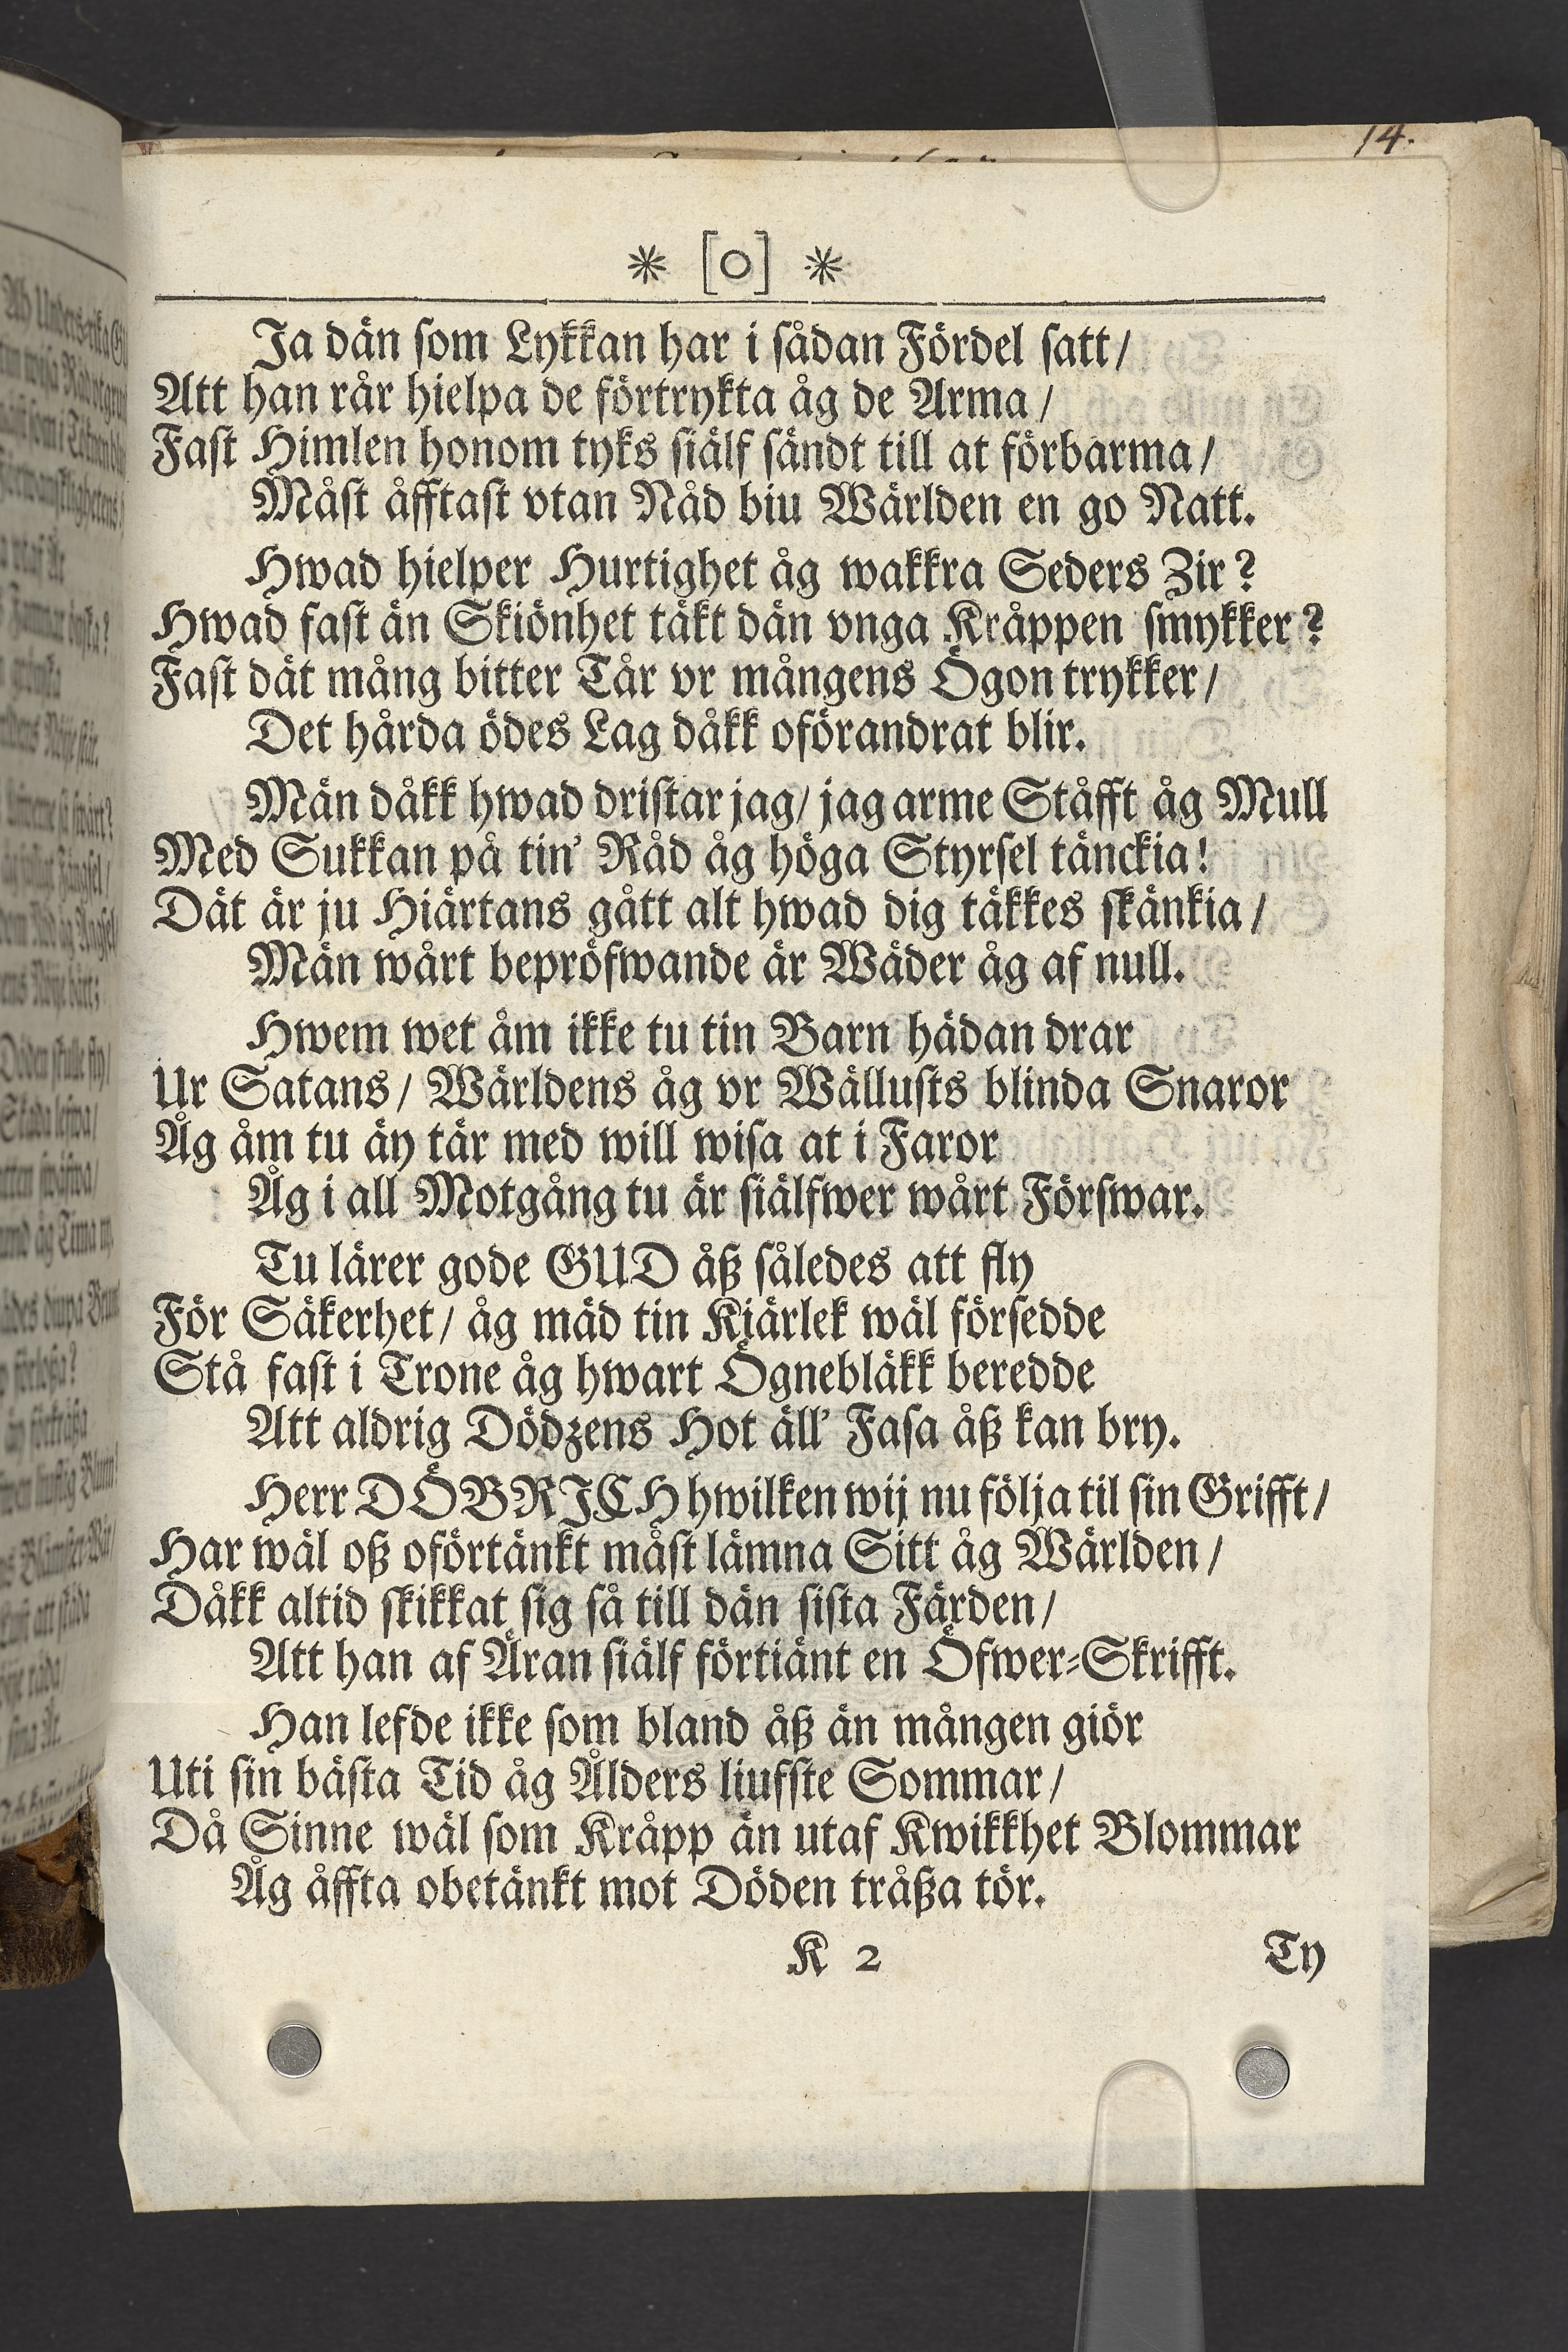 14.
* [o] *
Ja dän som Lykkan har i sådan Fördel satt/
Att han rår hielpa de förtrykta åg de Arma/
Fast Himlen honom tyks siälf sändt till at förbarma/
Måst åfftast vtan Nåd biu Wärlden en go Natt.
Hwad hielper Hurtighet åg wakkra Seders Zir?
Hwad fast än Skiönhet täkt dän vnga Kråppen smykker?
Fast dät mång bitter Tår vr mångens Ögon trykker/
Det hårda ödes Lag dåkk oförandrat blir.
Män dåkk hwad dristar jag/ jag arme Ståfft åg Mull
Med Sukkan på tin' Råd åg höga Styrsel tänckia!
Dät är ju Hiärtans gått alt hwad dig täkkes skänkia/
Män wårt bepröfwande är Wäder åg af null.
Hwem wet åm ikke tu tin Barn hädan drar
Ur Satans/ Wärldens åg vr Wällusts blinda Snaror
Åg åm tu äy tär med will wisa at i Faror
Åg i all Motgång tu är siälfwer wårt Förswar.
Tu lärer gode GUD åß således att fly
För Säkerhet/ åg mäd tin Kiärlek wäl försedde
Stå fast i Trone åg hwart Ögnebläkk beredde
Att aldrig Dödzens Hot äll' Fasa åß kan bry.
Herr DÖBRICH hwilken wij nu följa til sin Grifft/
Har wäl oß oförtänkt måst lämna Sitt åg Wärlden/
Dåkk altid skikkat sig så till dän sista Färden/
Att han af Äran siälf förtiänt en Öfwer-Skrifft.
Han lefde ikke som bland åß än mången giör
Uti sin bästa Tid åg Ålders liufste Sommar/
Då Sinne wäl som Kråpp än utaf Kwikkhet Blommar
Åg åffta obetänkt mot Döden tråßa tör.
K 2
Ty